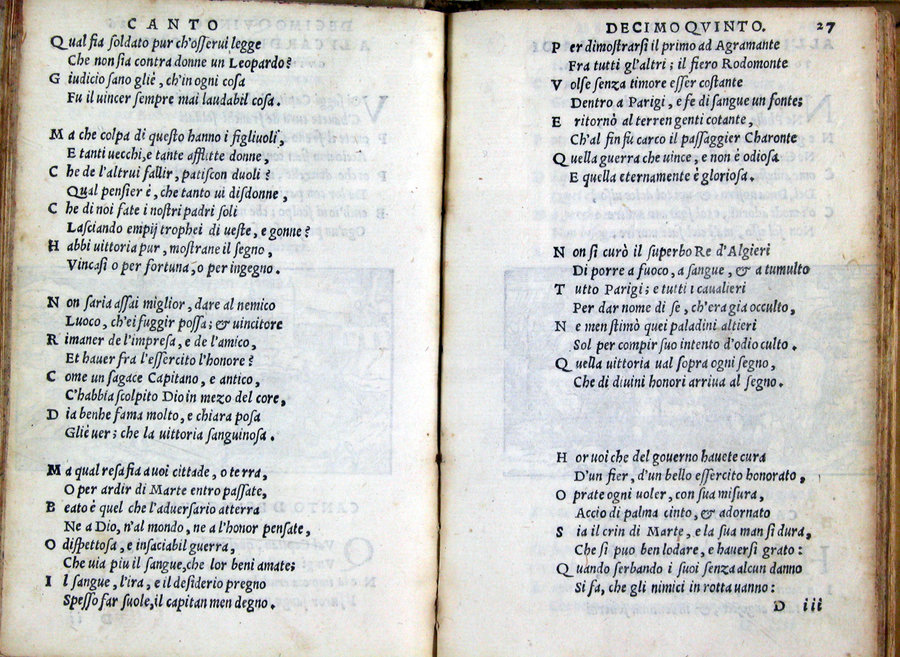 CANTO
Qual fia soldato pur ch'osserui legge
Che non sia contra donne un Leopardo?
Giudicio sano gliè, ch'in ogni cosa
Fu il uincer sempre mai laudabil cosa.
Ma che colpa di questo hanno i figliuoli,
E tanti uecchi, e tante afflitte donne,
Che de l'altrui fallir, patiscon duoli?
Qual pensier è, che tanto ui disdonne,
Che di noi fate i nostri padri soli
Lasciando empij trophei di ueste, e gonne?
Habbi uittoria pur, mostrane il segno,
Vincasi o per fortuna, o per ingegno.
Non saria assai miglior, dare al nemico
Luoco, ch'ei fuggir possa; & uincitore
Rimaner de l'impresa, e de l'amico,
Et hauer fra l'essercito l'honore?
Come un sagace Capitano, e antico,
C'habbia scolpito Dio in mezo del core,
Dia benhe fama molto, e chiara posa
Gliè uer; che la uittoria sanguinosa.
Ma qual resa fia a uoi cittade, o terra,
O per ardir di Marte entro passate,
Beato è quel che l'aduersario atterra
Ne a Dio, n'al mondo, ne a l'honor pensate,
O dispettosa, e insaciabil guerra,
Che uia piu il sangue, che lor beni amate;
Il sangue, l'ira, e il desiderio pregno
Spesso far suole, il capitan men degno.
DECIMOQVINTO. 27
Per dimostrarsi il primo ad Agramante
Fra tutti gl'altri; il fiero Rodomonte
Volse senza timore esser costante
Dentro a Parigi, e fe di sangue un fonte;
E ritornò al terren genti cotante,
Ch'al fin fù carco il passaggier Charonte
Quella guerra che uince, e non è odiosa
E quella eternamente è gloriosa.
Non si curò il superbo Re d'Algieri
Di porre a fuoco, a sangue, & a tumulto
Tutto Parigi; e tutti i caualieri
Per dar nome di se, ch'era gia occulto,
Ne men stimò quei paladini altieri
Sol per compir suo intento d'odio culto.
Quella uittoria ual sopra ogni segno,
Che di diuini honori arriua al segno.
Hor uoi che del gouerno hauete cura
D'un fier, d'un bello essercito honorato,
Oprate ogni uoler, con sua misura,
Accio di palma cinto, & adornato
Sia il crin di Marte, e la sua man si dura,
Che si puo ben lodare, e hauersi grato:
Quando serbando i suoi senza alcun danno
Si fa, che gli nimici in rotta uanno:
D iii